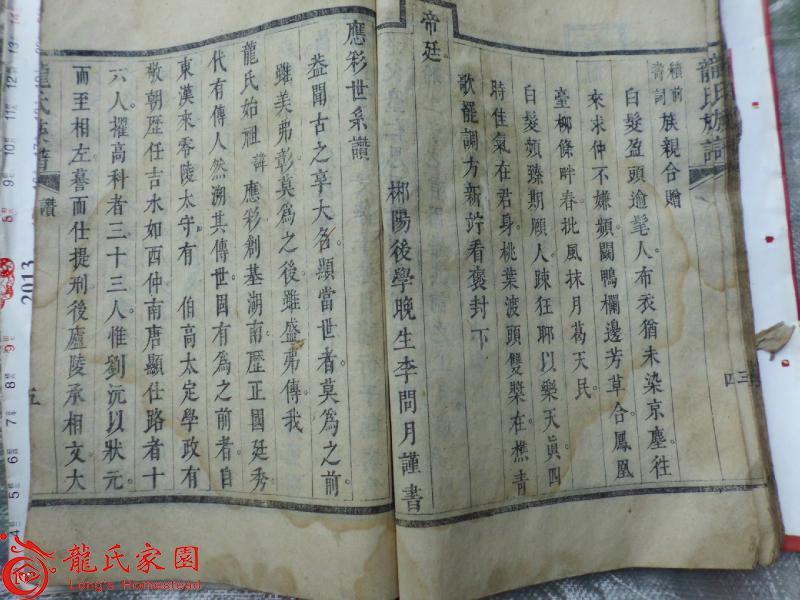 龍氏族譜
積前壽詞族親合贈
白髮盈頭逾髦人布衣猶未染京塵往
來求仲不嫌頻鬬鴨欄邊芳草合鳳凰
臺柳條畔春批風抹月葛天民
白髮頻臻期頤人踈狂聊以樂天眞四
時佳氣在君身桃葉渡頭雙槳在樵青
歌罷調方新竚看褒封下
帝廷
郴陽後學晚生李問月謹書
應彩世系讚
葢聞古之享大名顯當世者莫為之前
雖美弗彰莫為之後雖盛弗傳我
龍氏始祖諱應彩創基湖南歷正國廷秀
代有傳人然溯其傳世固有為之前者自
東漢來零陵太守有 伯高太定學政有
敬朝歷任吉水如西仲南唐顯仕路者十
六人擢高科者三十三人惟劉沅以狀元
而至相左譽而仕提刑後廬陵承相文大
龍氏族譜
讚
五
四三
2013
龍氏家園
Long's Homestead